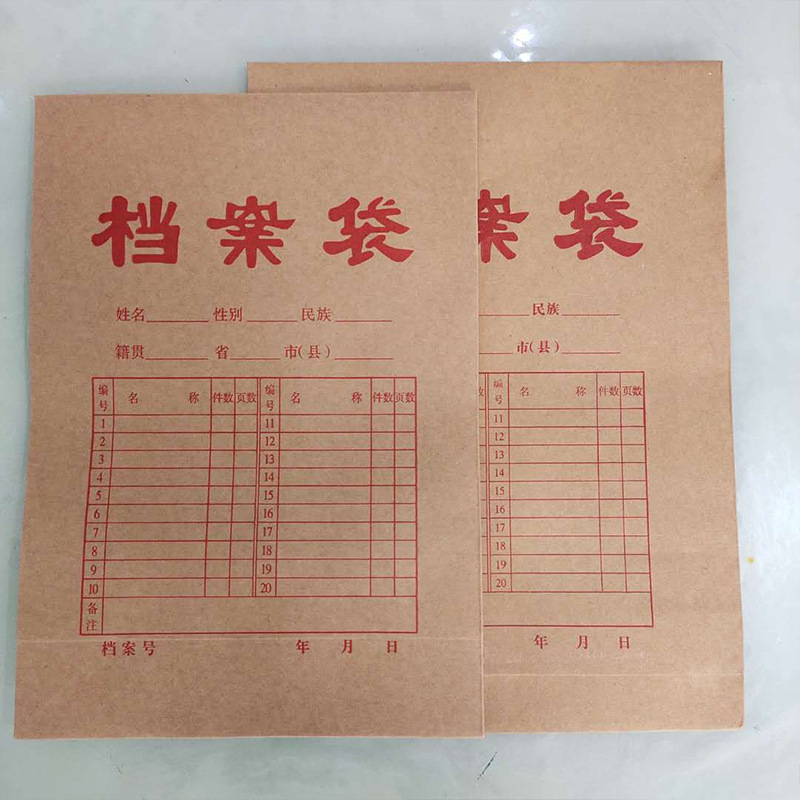 档案袋
姓名______ 性别______ 民族______
籍贯______ 省______ 市(县)______
编号 名 称 件数 页数 编号 名 称 件数 页数
1 11
2 12
3 13
4 14
5 15
6 16
7 17
8 18
9 19
10 20
备注
档案号 年 月 日
案袋
民族______
市(县)______
数 编号 名 称 件数 页数
11
12
13
14
15
16
17
18
19
20
年 月 日